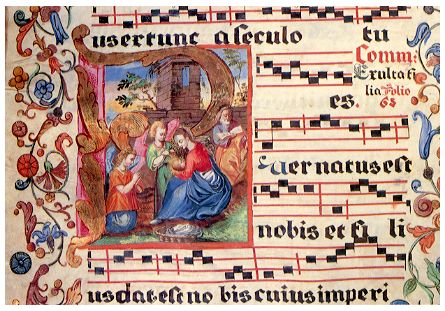 us ex tunc a seculo tu
Comm.
Exulta fi
lia Folio
63
es.
Puer natus est
nobis et fi li
us dat est no bis cuius imperi